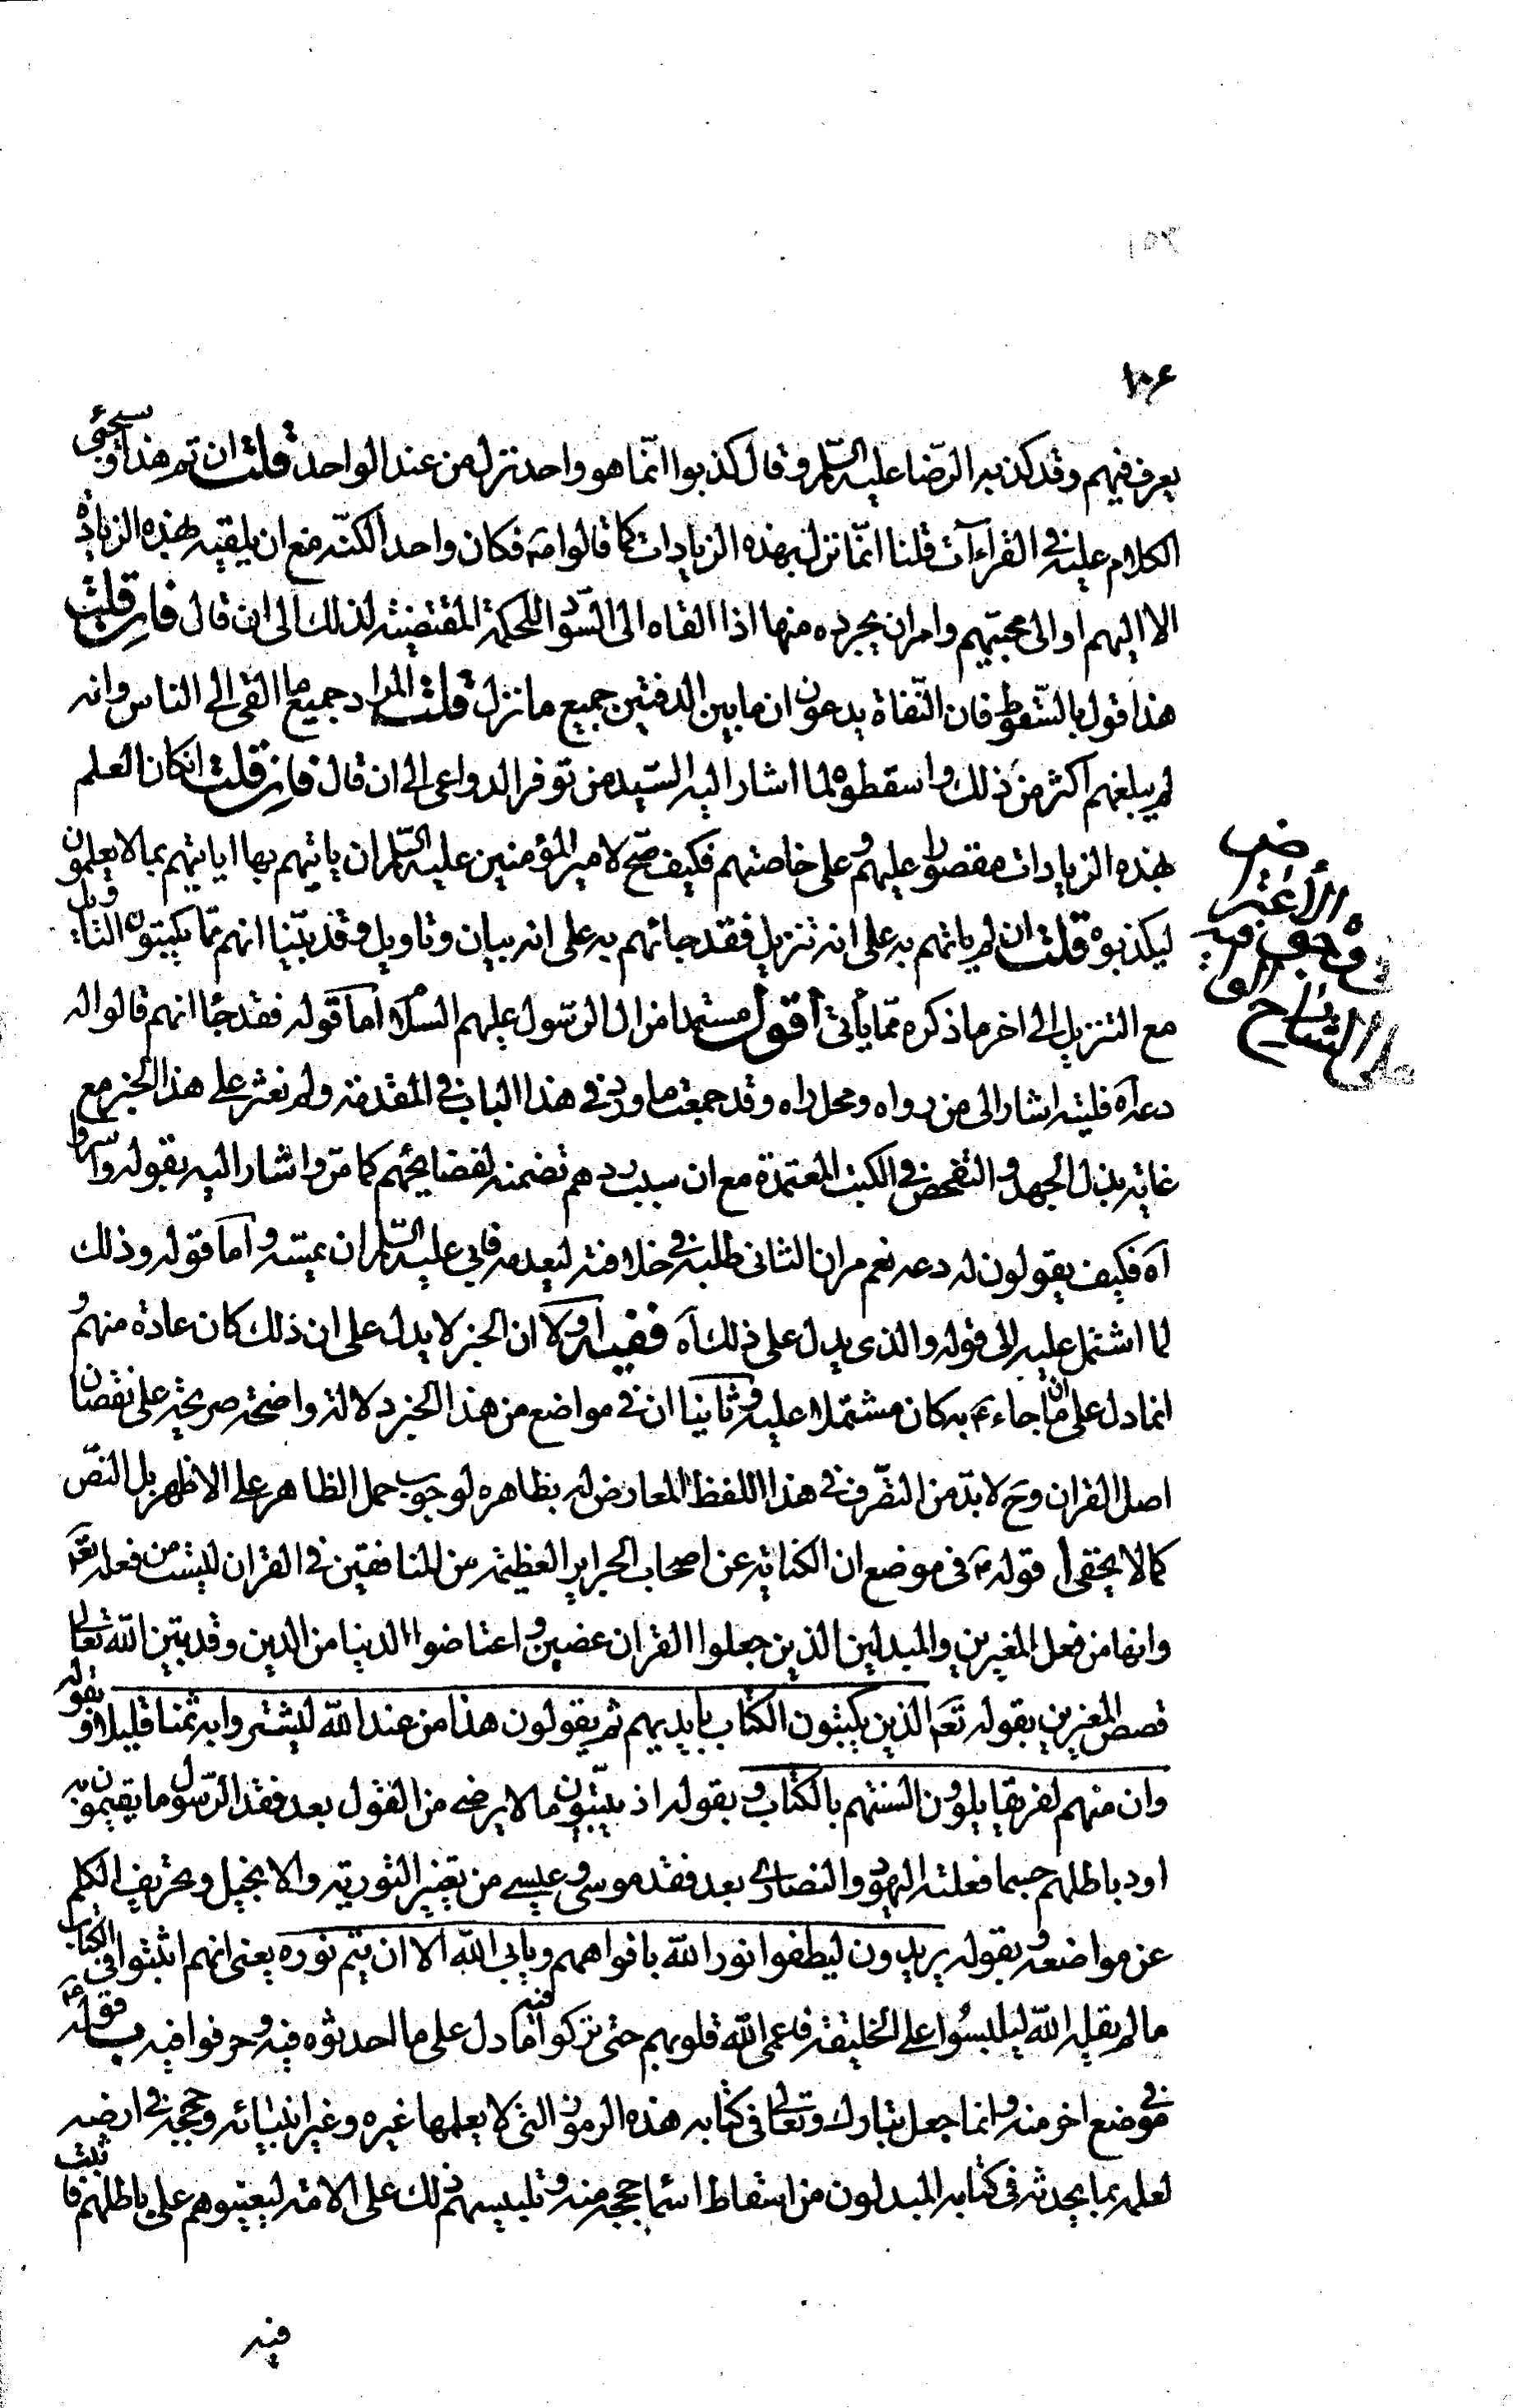 ١٠٤
يعرف فيهم وقد كذبه الرضا عليه السلم وقال كذبوا انما هو واحد نزل من عند الواحد قلت ان تم هذا وسيجئ
الكلام عليه في القراءآت قلنا انما نزل بهذه الزيادات كما قالوا مه فكان واحدا لكنه مع ان يلقيه بهذه الزيادة
الا اليهم او الى محبيهم وامر ان يجرده منها اذا القاه الى السواد للحكمة المقتضية لذلك الى ان قال فان قلت
هذا قول بالسقوط فان النفاة يدعون ان ما بين الدفتين جميع ما نزل قلت المراد جميع ما القى الى الناس وانه
لم يبلغهم اكثر من ذلك واسقطوه لما اشار اليه السيد من توفر الدواعى الى ان قال فان قلت ان كان العلم
بهذه الزيادات مقصورا عليهم وعلى خاصتهم فكيف صح لامير المؤمنين عليه السلم ان ياتيهم بها ايأتيهم بما لا يعلمون
ليكذبوه قلت ان لم ياتهم به على انه تنزيل فقد جائهم به على انه بيان وتاويل وقد بينا انهم مما يكتبون التاويل
مع التنزيل الى اخر ما ذكره مما يأتى أقول مستمدا من ال الرسول عليهم السلام اما قوله فقد جا انهم قالوا له
دعه آه فليته اشار الى من رواه ومحل راه وقد جمعت ما ورد في هذا الباب في المقدمة ولم نعثر على هذا الخبر مع
غاية بذل الجهد والتفحص في الكتب المعتمدة مع ان سبب ردهم تضمنه لفضايحهم كما مر واشار اليه بقوله واسروا
آه فكيف يقولون له دعه نعم مر ان الثانى طلبه في خلافته ليعدمه فابى عليه السلم ان يمسه واما قوله وذلك
لما اشتمل عليه الى قوله والذى يدل على ذلك آه ففيه اولا ان الخبر لا يدل على ان ذلك كان عادة منهم و
انما دل على ان ما جاءهم به كان مشتملا عليه وثانيا ان في مواضع من هذا الخبر دلالة واضحة صريحة على نقصان
اصل القران وح لا بد من التصرف في هذا اللفظ المعارض له بظاهره لوجوب حمل الظاهر على الاظهر بل النص
كما لا يخفى أ قوله ع في موضع ان الكناية عن اصحاب الجراير العظيمة من المنافقين في القران ليست من فعله تعم
وانها من فعل المغيرين والمبدلين الذين جعلوا القران عضين واعتاضوا الدنيا من الدين وقد بين الله تعالى
قصص المغيرين بقوله تعم الذين يكتبون الكتاب بايديهم ثم يقولون هذا من عند الله ليشتروا به ثمنا قليلا وبقوله
وان منهم لفريقا يلوون السنتهم بالكتاب وبقوله اذ يبيتون ما لا يرضى من القول بعد فقد الرسول ما يقيمون به
اود باطلهم حسبما فعلته اليهود والنصارى بعد فقد موسى وعيسى من تغيير التورية والانجيل وتحريف الكلم
عن مواضعه وبقوله يريدون ليطفوا نور الله بافواههم ويابى الله الا ان يتم نوره يعنى انهم اثبتوا فى الكتاب
ما لم يقله الله ليلبسوا على الخليقة فاعمى الله قلوبهم حتى تركوا فيه ما دل على ما احدثوه فيه وحرفوا فيه ب قوله ع
في موضع اخر منه وانما جعل تبارك وتعالى في كتابه هذه الرموز التى لا يعلمها غيره وغير انبيائه وحججه في ارضه
لعلمه بما يحدثه في كتابه المبدلون من اسقاط اسما حججه منه وتلبيسهم ذلك على الامة ليعينوهم على باطلهم فاثبت
فيه
على الشارح